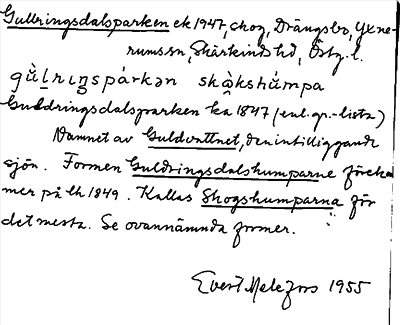 Gullringsdalsparken ek 1947, skog, Drängsbo, Yxne-
rums sn, Skärkinds hd, Östg. l.
gù̀l̠rıŋspárkən skɷ̀kshùmpa
Guldringsdalsparken ka 1847 (enl. gr.-lista)
Namnet av Guldvattnet, den intilliggande
sjön. Formen Guldringsdalshumparne föreko
mer på lk 1849. Kallas Skogshumparna för
det mesta. Se ovannämnda former.
Evert Melefors 1955